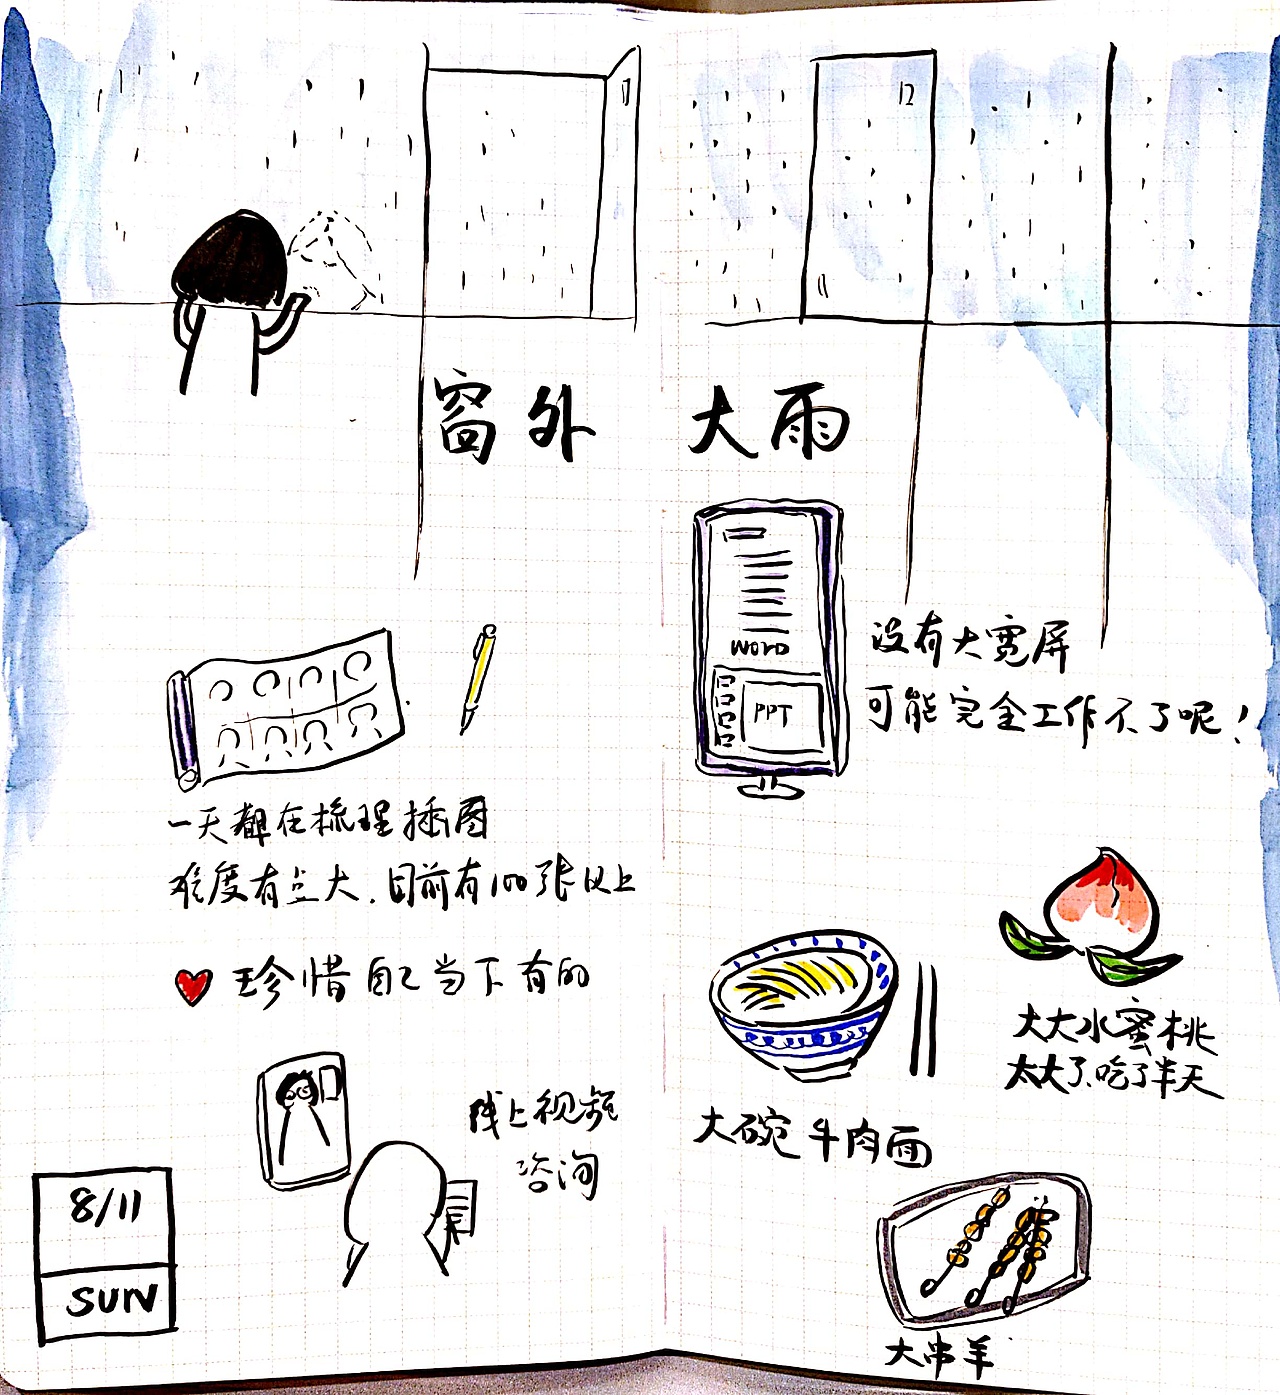 窗外 大雨
WORD
PPT
没有大宽屏
可能完全工作不了呢！
一天都在梳理插图
难度有点大，目前有100张以上
珍惜自己当下有的
线上视频
咨询
大碗牛肉面
大大水蜜桃
太大了、吃了半天
大串羊
8/11
SUN